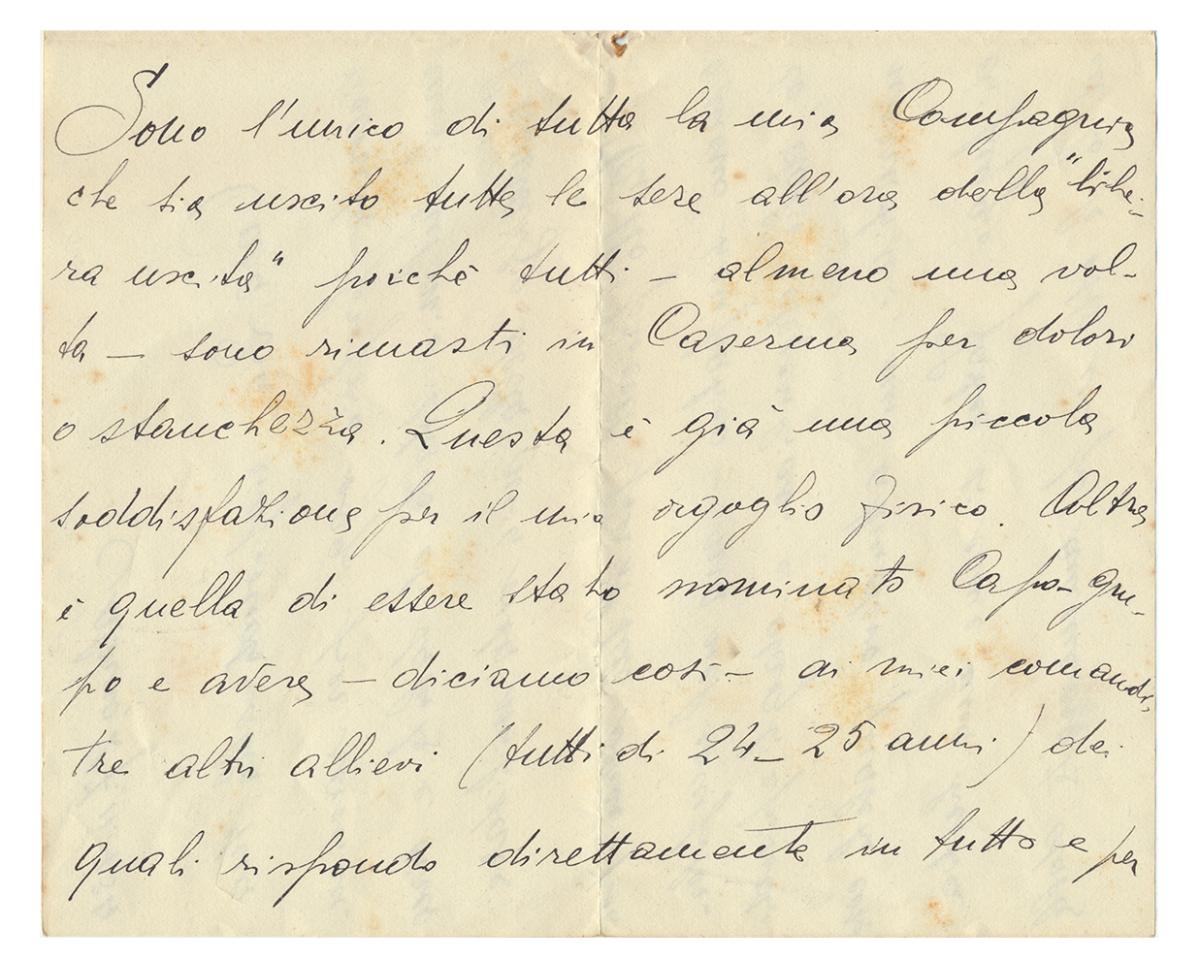 Sono l'unico di tutta la mia Compagnia
che sia uscito tutte le sere all'ora della "libe-
ra uscita" poichè tutti - almeno una vol-
ta - sono rimasti in Caserma per dolori
o stanchezza. Questa è già una piccola
soddisfazione per il mio orgoglio fisico. Altra
è quella di essere stato nominato Capo-gru-
po e avere - diciamo così - ai miei comandi,
tre altri allievi (tutti di 24-25 anni) dei
quali rispondo direttamente in tutto e per